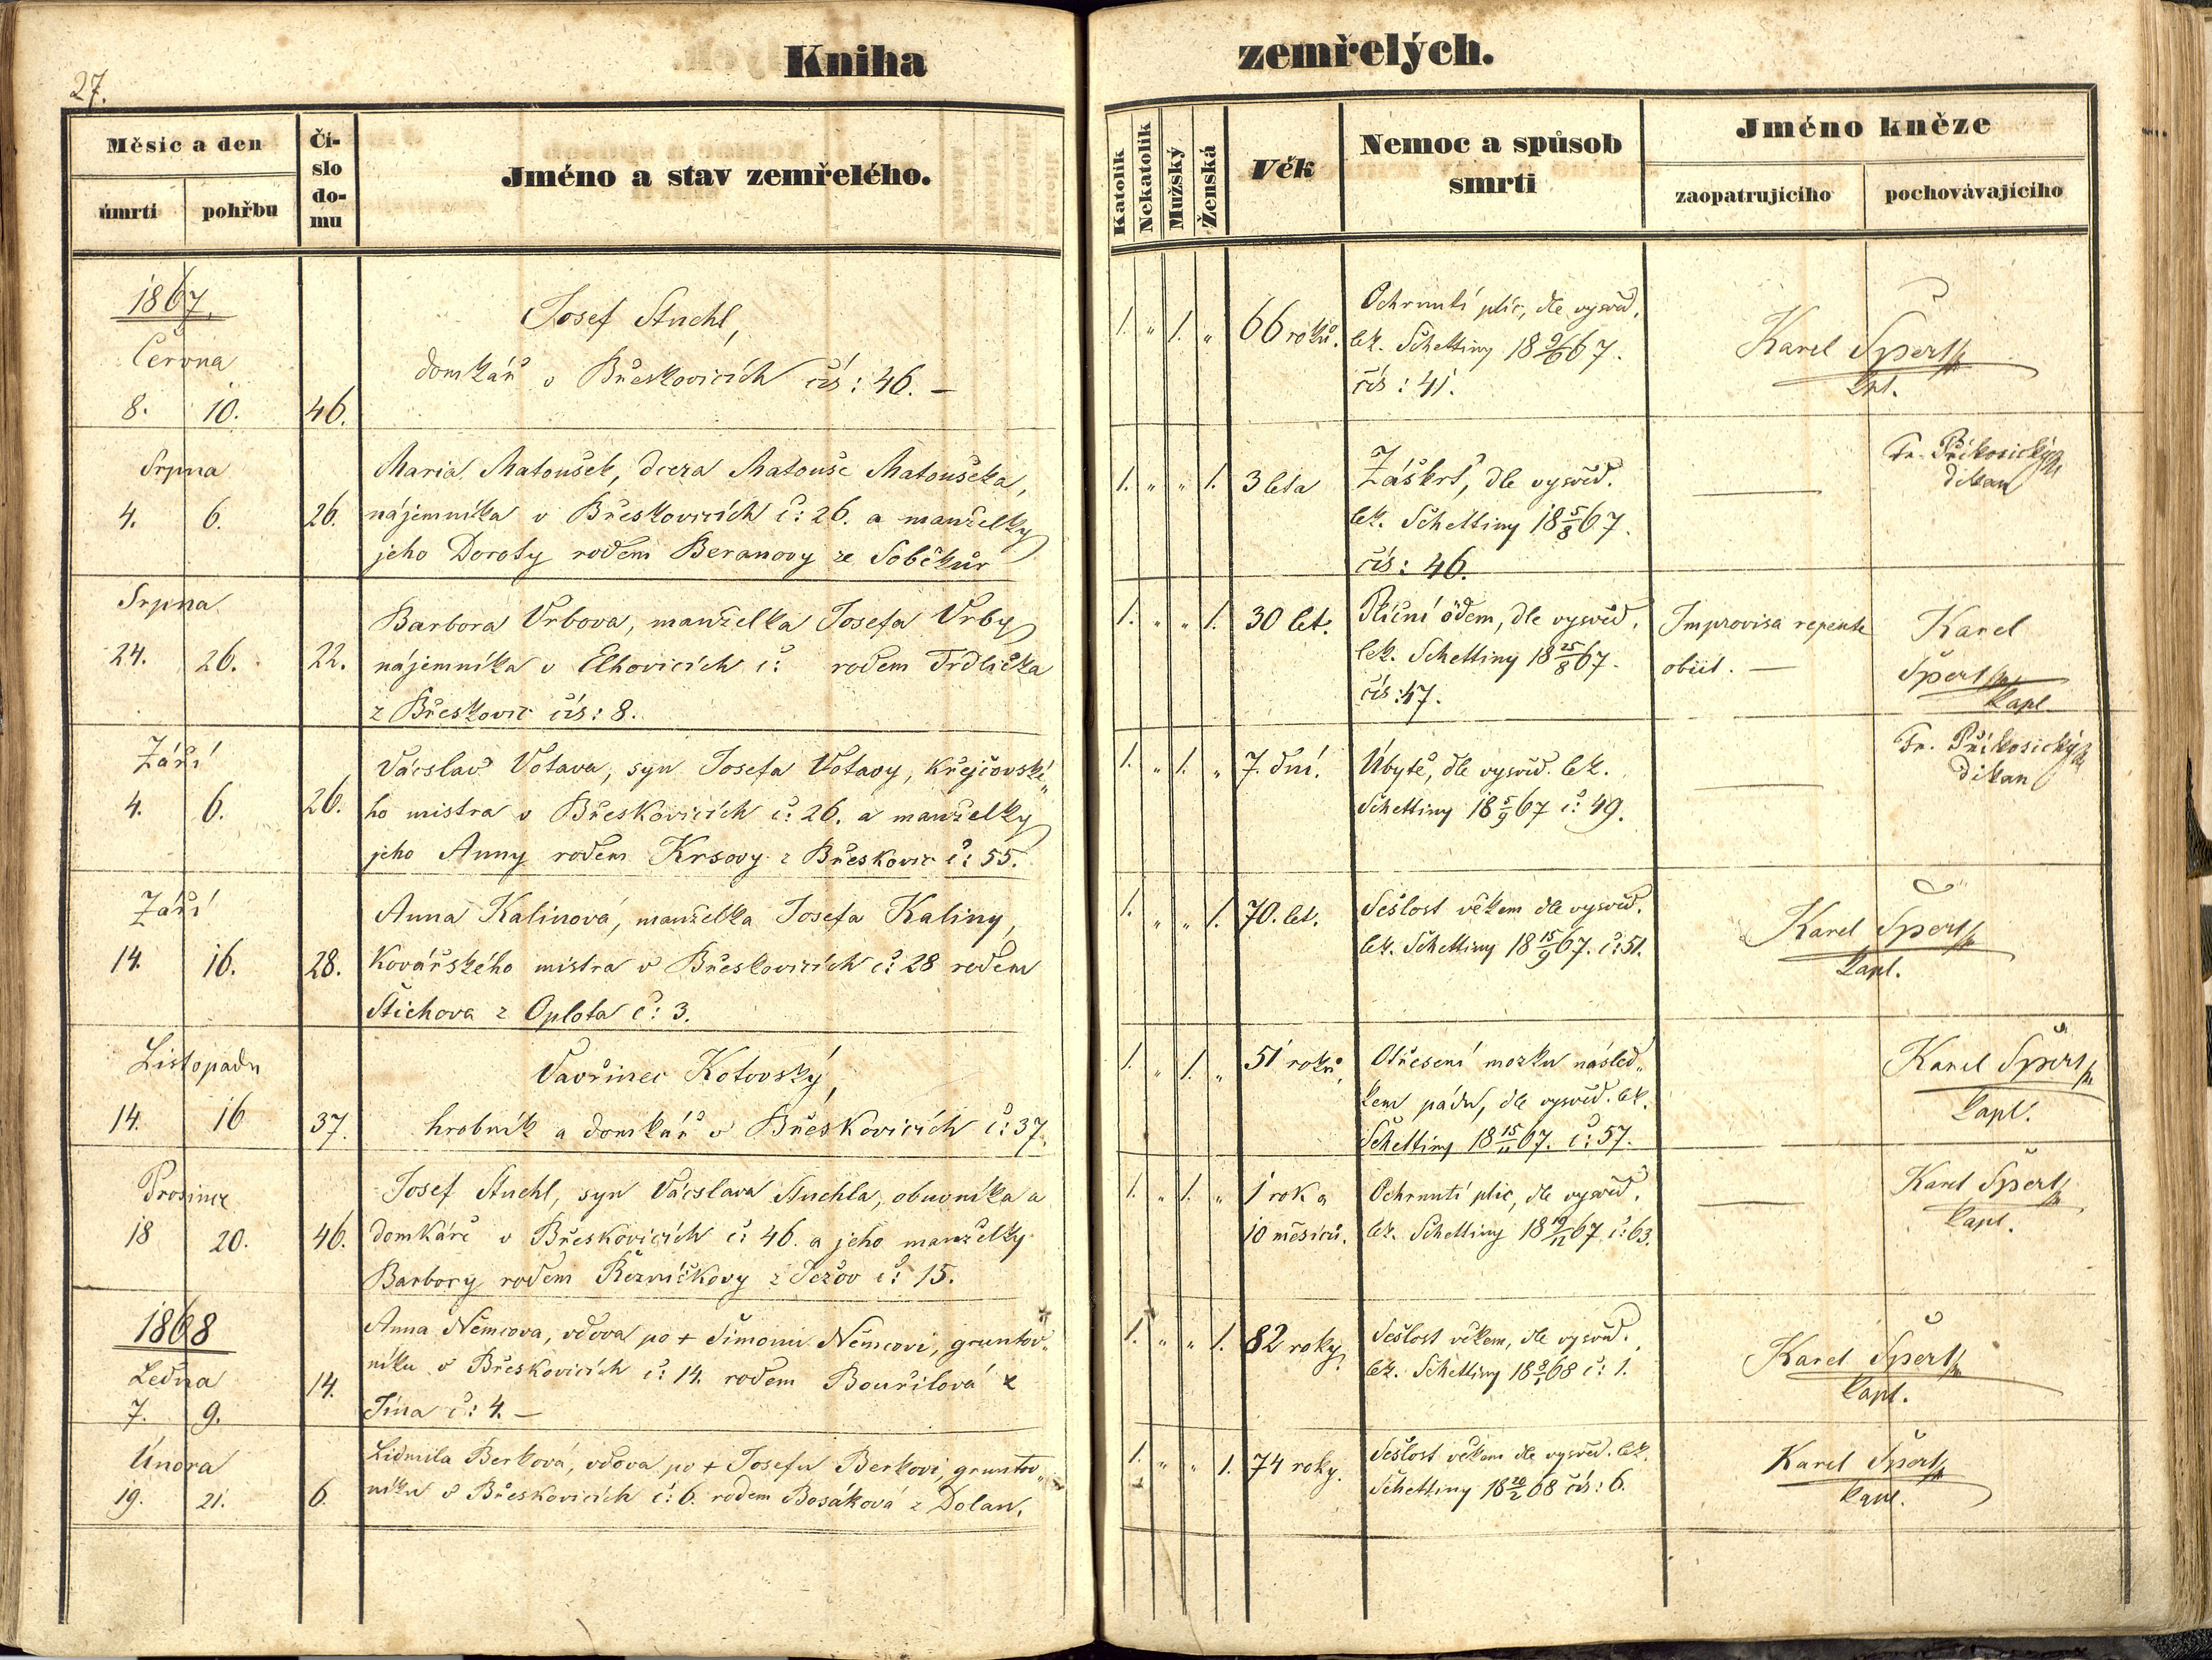 27.
Kniha zemřelých.
Měsíc a den
úmrtí
pohřbu
Čí-
slo
do-
mu
Jméno a stav zemřelého.
Katolík
Nekatolík
Mužský
Ženská
Věk
Nemoc a spůsob
smrti
Jméno kněze
zaopatrujícího
pochovávajícího
1867.
Června
8. 10. 46.
Josef Stuchl,
domkář v Břeskovicích čís: 46. —
1. „ 1. „
66 roků.
Ochrnutí plic, dle vysvěd.
lék. Schettiny 18 9/6 67.
čís: 41.
Karel Špert
kpl.
Srpna
4. 6. 26.
Maria Matoušek, dcera Matouše Matoušeka,
nájemníka v Břeskovicích č: 26. a manželky
jeho Doroty rodem Beranovy ze Soběkur
1. „ „ 1.
3 leta
Záškrt, dle vysvěd.
lek. Schettiny 18 5/8 67.
čís: 46.
—
Fr. Příkosický
děkan
Srpna
24. 26. 22.
Barbora Vrbova, manželka Josefa Vrby
nájemníka v Elhovicích č: rodem Trdlička
z Břeskovic čís: 8.
1. „ „ 1.
30 let.
Plicní ödem, dle vysvěd.
lek. Schettiny 18 25/8 67.
čís: 47.
Improvisa repente
obiit. —
Karel
Špert
kapl.
Září
4. 6. 26.
Václav Votava, syn Josefa Votavy, krejčovské„
ho mistra v Břeskovicích č: 26. a manželky
jeho Anny rodem Krsovy z Břeskovic č: 55.
1. „ 1. „
7. dní.
Úbytě, dle vysvěd. lek.
Schettiny 18 5/9 67 č: 49.
—
Fr. Příkosický
děkan
Září
14. 16. 28.
Anna Kalinová, manželka Josefa Kaliny,
Kovářského mistra v Břeskovicích č: 28 rodem
Štichova z Oplota č: 3.
1. „ „ 1.
70. let.
Sešlost věkem dle vysvěd.
lek. Schettiny 18 15/9 67. č: 51.
Karel Špert
kapl.
Listopadu
14. 16 37.
Vavřinec Kotovský,
hrobník a domkář v Břeskovicích č: 37.
1. „ 1. „
51 roků,
Otřesení mozku násled„
kem pádu, dle vysvěd. lek.
Schettiny 18 15/11 67. č: 57.
—
Karel Špert
kapl.
Prosince
18 20. 46.
Josef Stuchl, syn Václava Stuchla, obuvníka a
domkáře v Břeskovicích č: 46. a jeho manželky
Barbory rodem Řezníčkovy z Ježov č: 15.
1. „ 1. „
1 rok a
10 měsíců.
Ochrnutí plic, dle vysvěd.
lek. Schettiny 18 19/12 67 č: 63.
—
Karel Špert
kapl.
1868
Ledna
7. 9. 14.
Anna Němcova, vdova po + Šimonu Němcovi, gruntov„
níku v Břeskovicích č: 14. rodem Bouřilová z
Jína č: 4. —
1. „ „ 1.
82 roky.
Sešlost věkem, dle vysvěd.
lek. Schettiny 18 8/1 68 č: 1.
Karel Špert
kapl.
Února
19. 21. 6.
Lidmila Berková, vdova po + Josefu Berkovi, gruntov„
níku v Břeskovicích č: 6. rodem Bosáková z Dolan.
1. „ „ 1.
74 roky.
Sešlost věkem dle vysvěd. lek.
Schettiny 18 20/2 68 čís: 6.
Karel Špert
kapl.